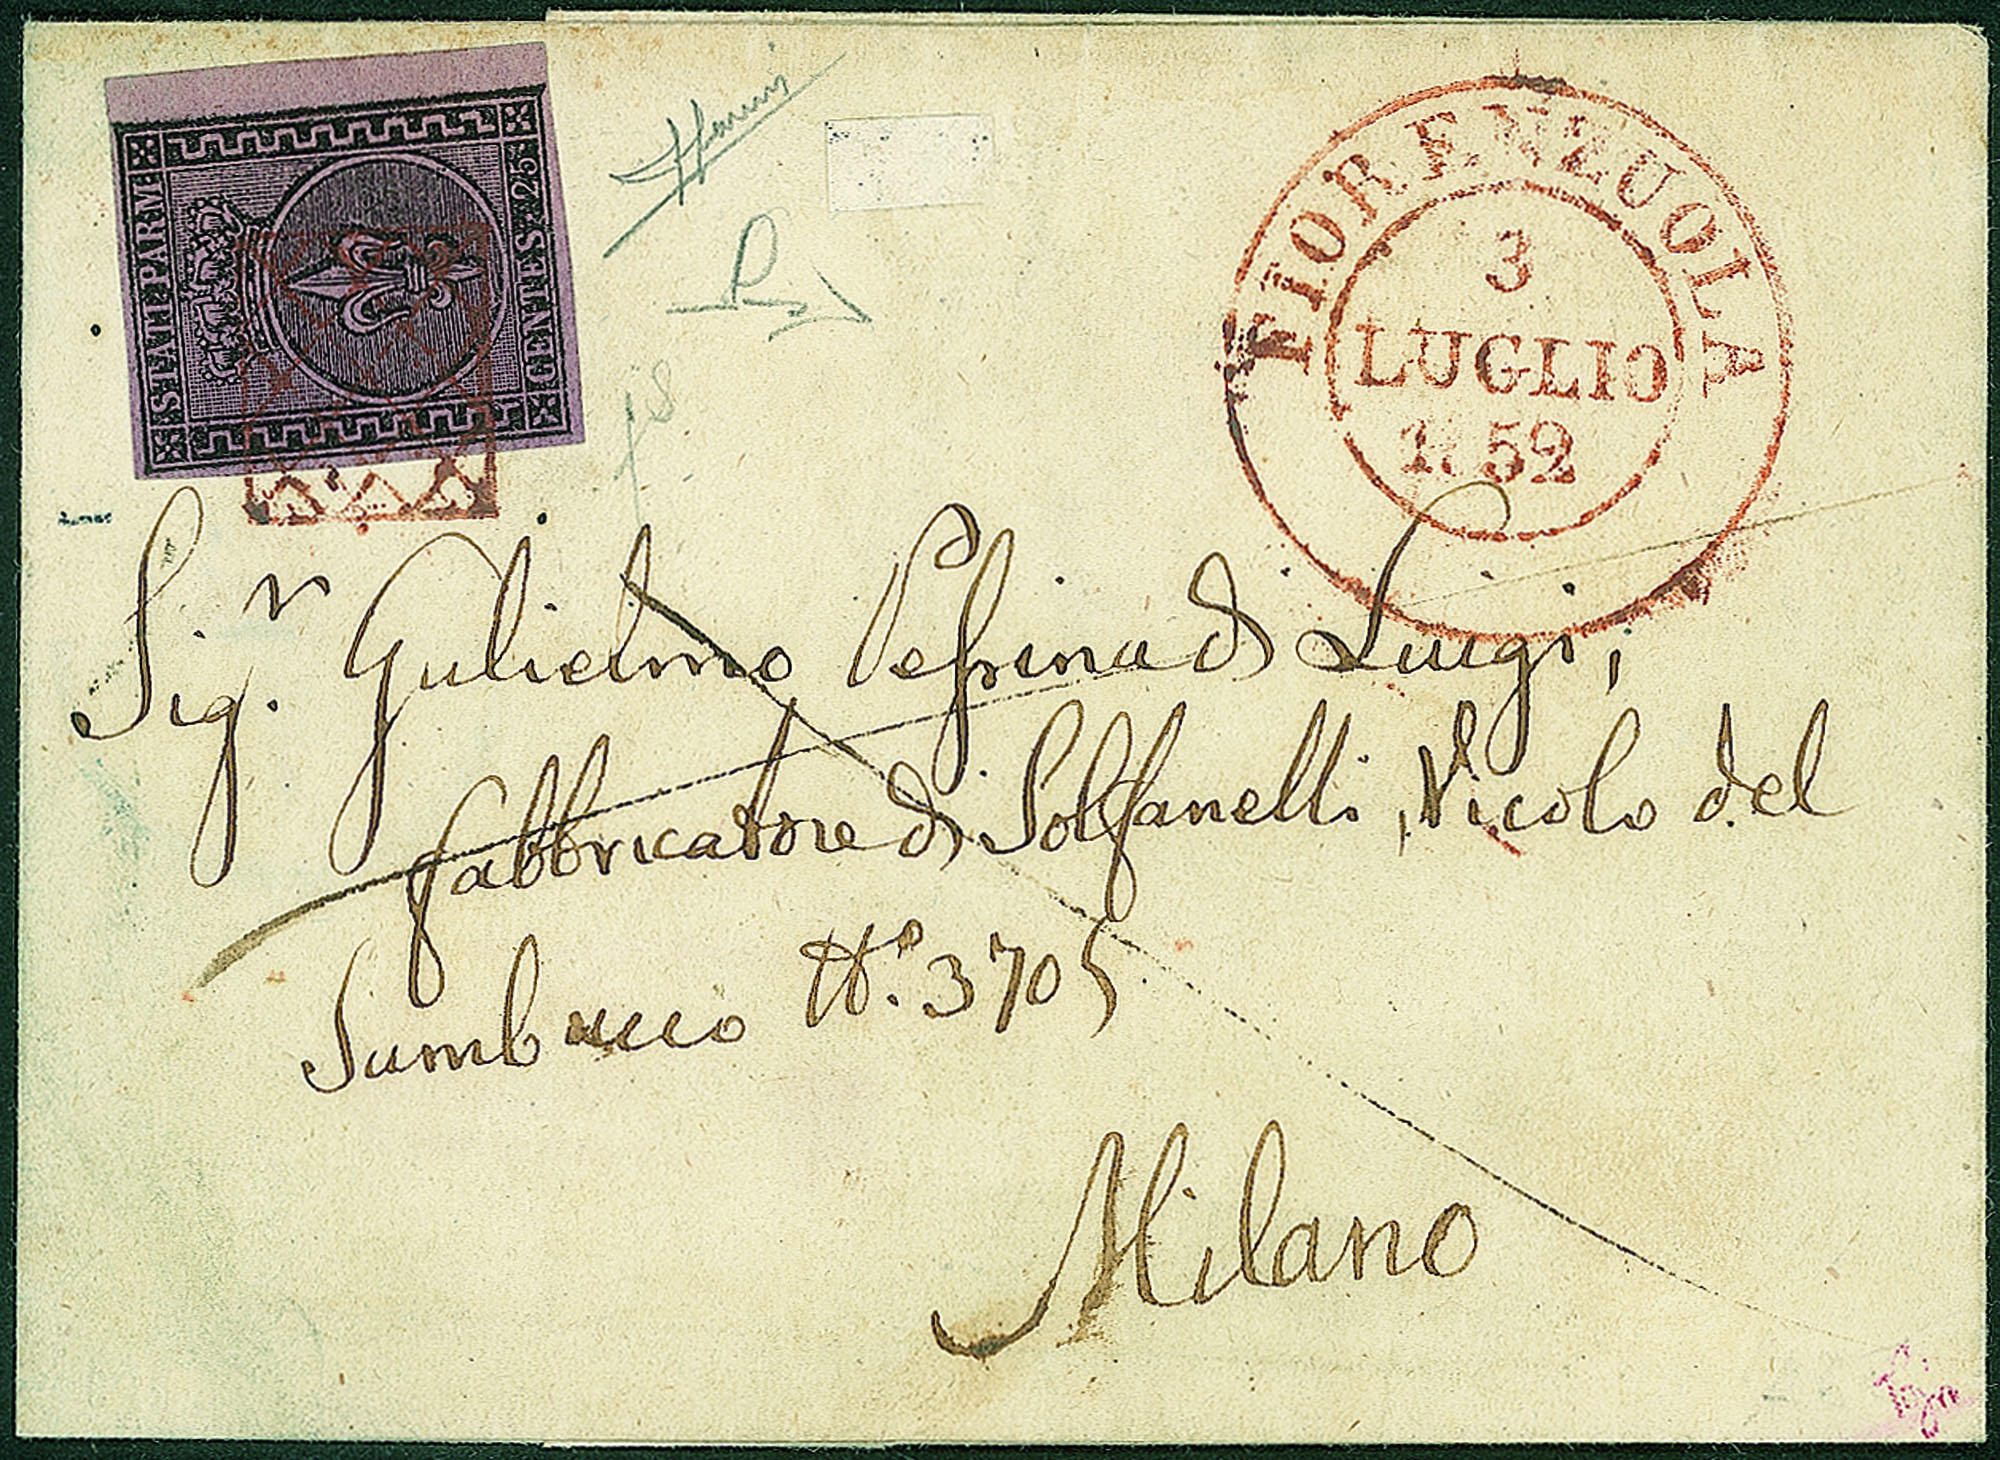 STATI PARM.
CENTES. 25
FIORENZUOLA
3
LUGLIO
1852
Sig.r Gulielmo Pessina di Luigi,
fabbricatore di Solfanelli, Vicolo del
Sambuco N.o 3705
Milano